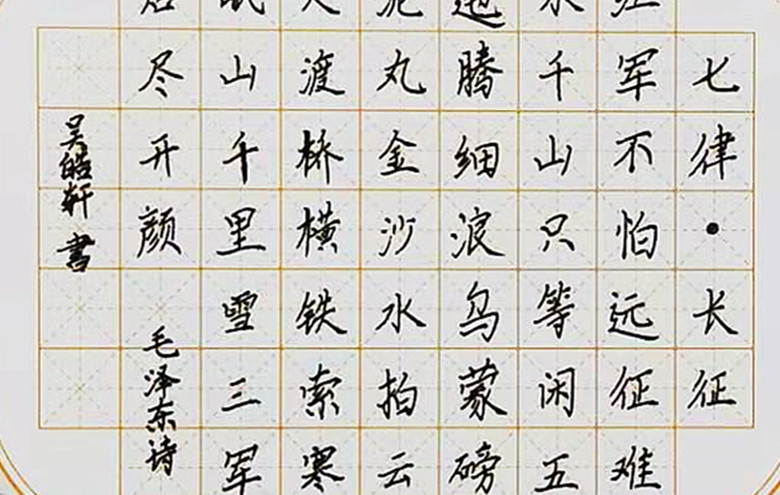 七律·长征
红军不怕远征难
水千山只等闲五
迤腾细浪乌蒙磅
泥丸金沙水拍云
大渡桥横铁索寒
岷山千里雪三军
后尽开颜
毛泽东诗
吴皓轩書